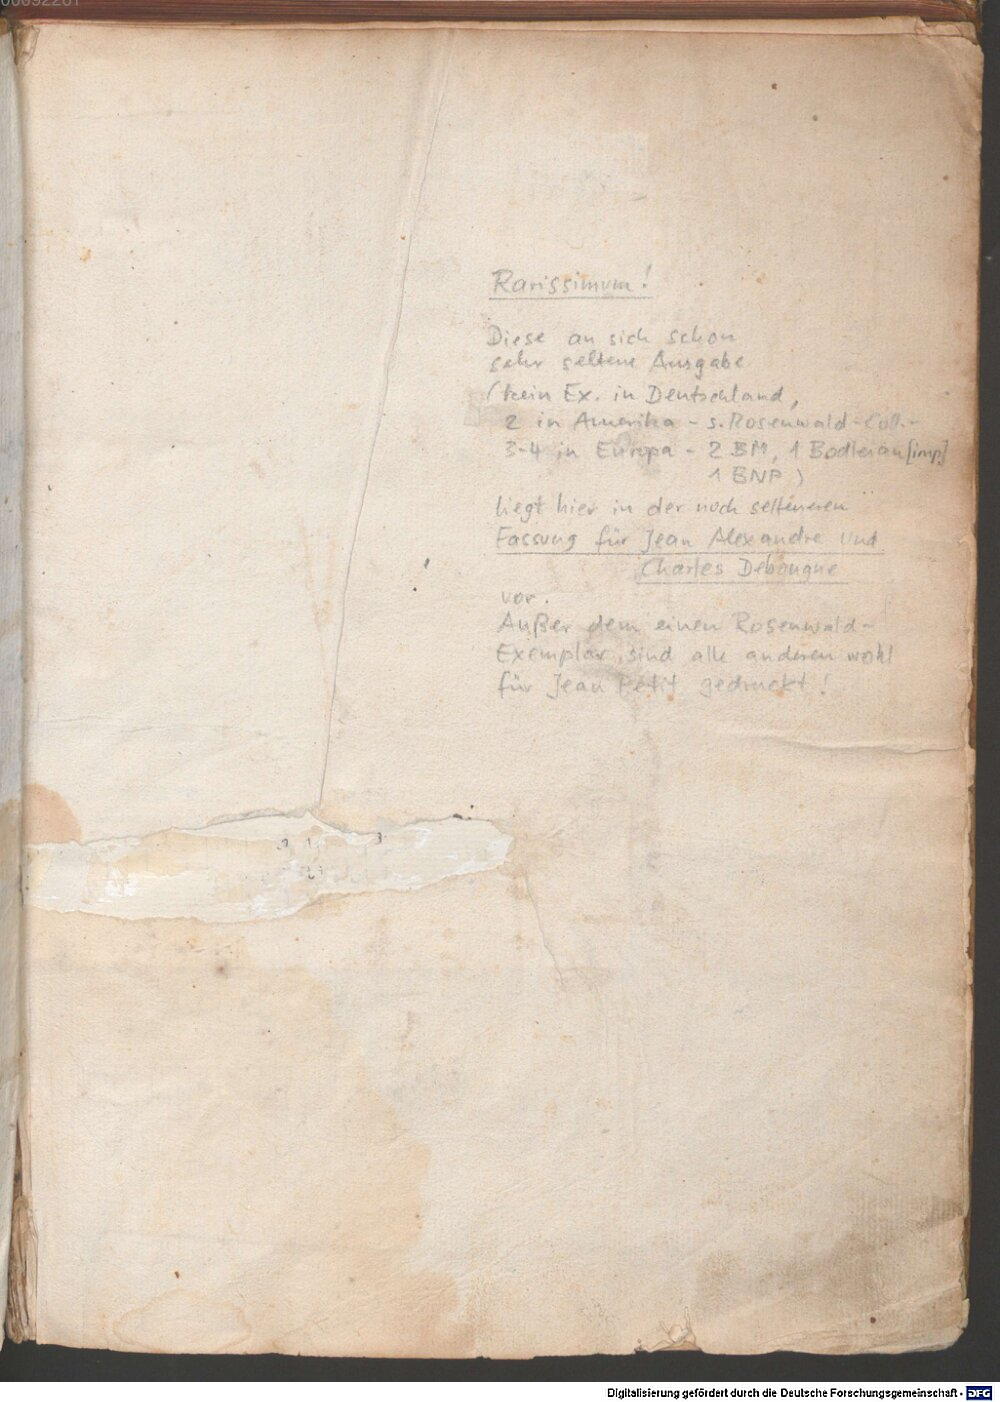 00092281
Rarissimum!
Diese an sich schon
sehr seltene Ausgabe
(kein Ex. in Deutschland,
2 in Amerika - s. Rosenwald-Coll.-
3-4 in Europa - 2 BM, 1 Bodleian [imp]
1 BNP)
liegt hier in der noch selteneren
Fassung für Jean Alexandre und
Charles Debougne
vor.
Außer dem einen Rosenwald-
Exemplar sind alle anderen wohl
für Jean Petit gedruckt!
Digitalisierung gefördert durch die Deutsche Forschungsgemeinschaft - DFG